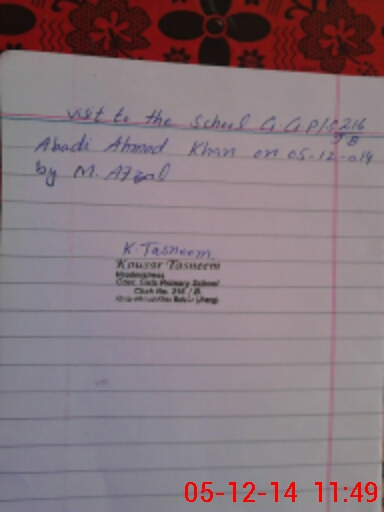 visit to the school G.G.P/S 216
JB
Abadi Ahmad Khan on 05-12-014
by M. Afzal
K. Tasneem
Kousar Tasneem
Headmistress
Govt. Girls Primary School
Chak No. 216 / JB
05-12-14 11:49